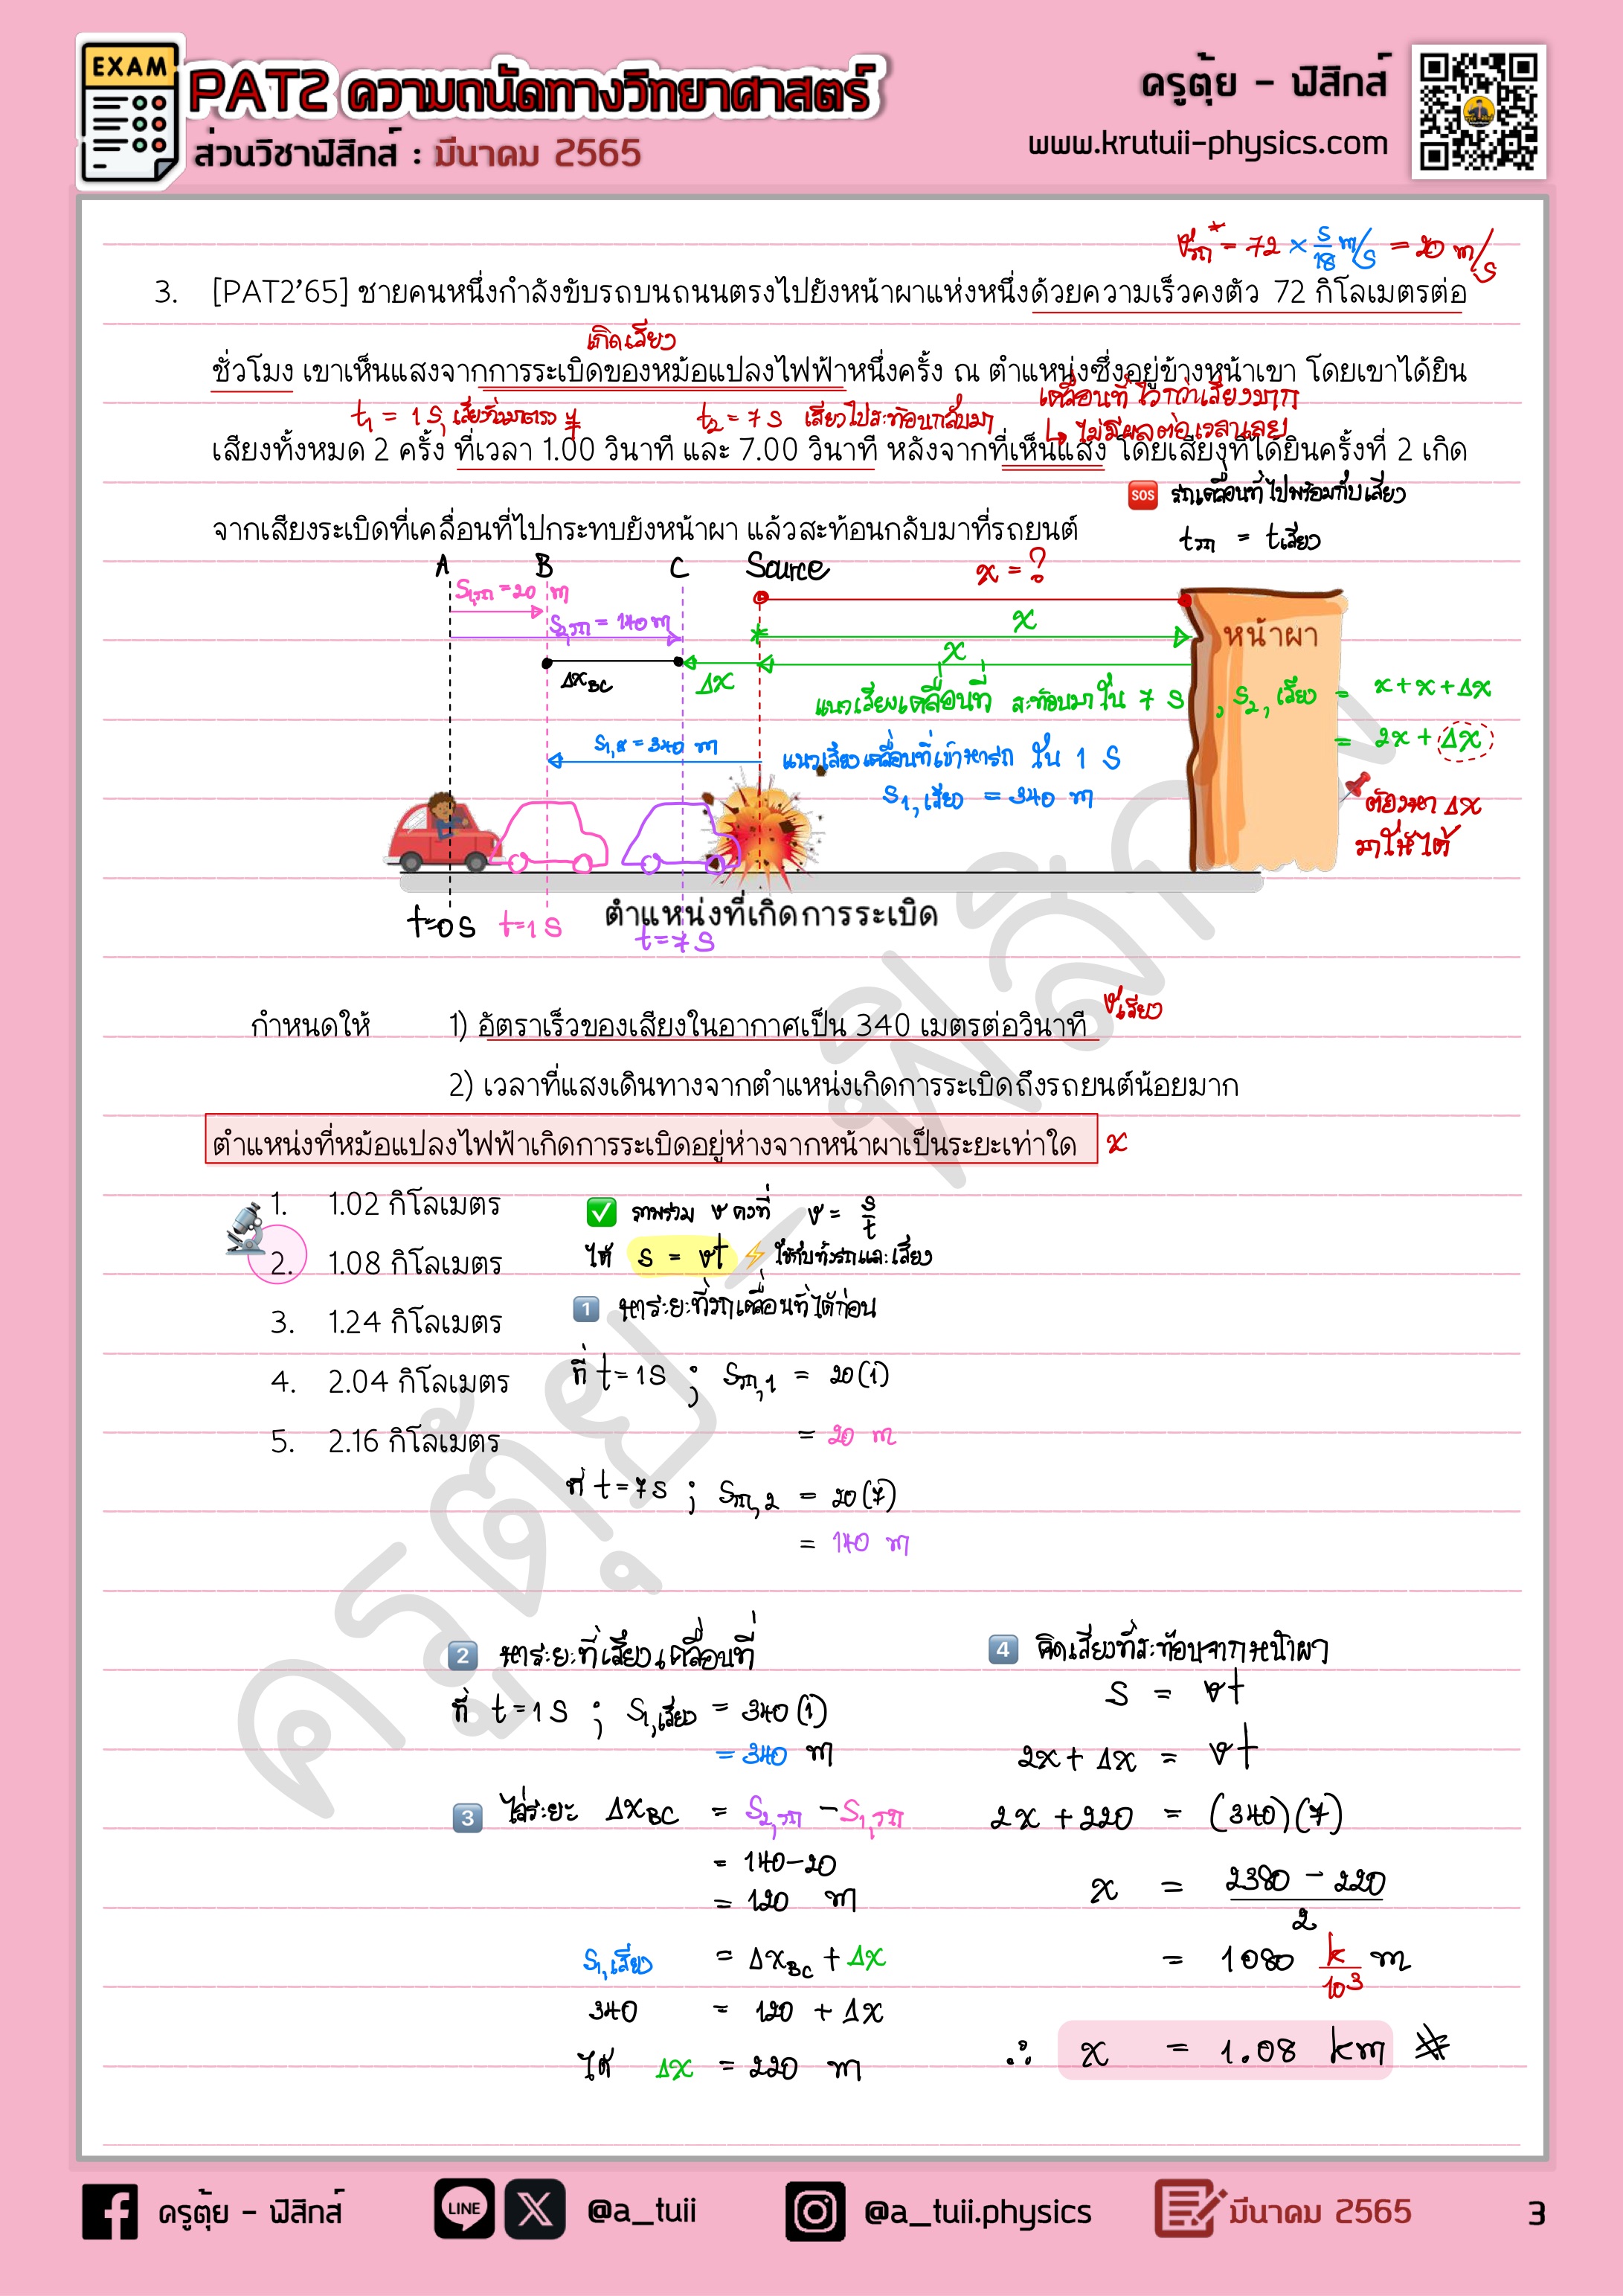 EXAM
PAT2 ความถนัดทางวิทยาศาสตร์
ส่วนวิชาฟิสิกส์ : มีนาคม 2565
ครูตุ้ย - ฟิสิกส์
www.krutuii-physics.com
v รถ = 72 × 5/18 m/s = 20 m/s
3. [PAT2’65] ชายคนหนึ่งกำลังขับรถบนถนนตรงไปยังหน้าผาแห่งหนึ่งด้วยความเร็วคงตัว 72 กิโลเมตรต่อ
เกิดเสียง
ชั่วโมง เขาเห็นแสงจากการระเบิดของหม้อแปลงไฟฟ้าหนึ่งครั้ง ณ ตำแหน่งซึ่งอยู่ข้างหน้าเขา โดยเขาได้ยิน
t₁ = 1 s,
t₂ = 7 s เสียงไปสะท้อนกลับมา
เคลื่อนที่ไวกว่าเสียงมาก
↳ ไม่มีผลต่อเวลาเลย
เสียงทั้งหมด 2 ครั้ง ที่เวลา 1.00 วินาที และ 7.00 วินาที หลังจากที่เห็นแสง โดยเสียงที่ได้ยินครั้งที่ 2 เกิด
SOS รถเคลื่อนที่ไปพร้อมกับเสียง
จากเสียงระเบิดที่เคลื่อนที่ไปกระทบยังหน้าผา แล้วสะท้อนกลับมาที่รถยนต์
t รถ = t เสียง
A B C Source x = ?
S₁,รถ = 20 m
S₂,รถ = 140 m
x
หน้าผา
x
Δx BC
Δx
แนวเสียงเคลื่อนที่ สะท้อนมาใน 7 s , S₂,เสียง = x + x + Δx
= 2x + Δx
S₁,ส = 340 m
แนวเสียงเคลื่อนที่เข้าหารถ ใน 1 s
S₁,เสียง = 340 m
ต้องหา Δx
มาให้ได้
t=0 s t=1 s t=7 s
ตำแหน่งที่เกิดการระเบิด
v เสียง
กำหนดให้ 1) อัตราเร็วของเสียงในอากาศเป็น 340 เมตรต่อวินาที
2) เวลาที่แสงเดินทางจากตำแหน่งเกิดการระเบิดถึงรถยนต์น้อยมาก
ตำแหน่งที่หม้อแปลงไฟฟ้าเกิดการระเบิดอยู่ห่างจากหน้าผาเป็นระยะเท่าใด x
1. 1.02 กิโลเมตร
2. 1.08 กิโลเมตร
3. 1.24 กิโลเมตร
4. 2.04 กิโลเมตร
5. 2.16 กิโลเมตร
ภาพรวม v คงที่ v = s/t
ได้ s = vt ใช้กับทั้งรถและเสียง
1 หาระยะที่รถเคลื่อนที่ได้ก่อน
ที่ t = 1 s ; S รถ,1 = 20(1)
= 20 m
ที่ t = 7 s ; S รถ,2 = 20(7)
= 140 m
2 หาระยะที่เสียงเคลื่อนที่
ที่ t = 1 s ; S₁,เสียง = 340(1)
= 340 m
3 ไล่ระยะ Δx BC = S₂,รถ − S₁,รถ
= 140 − 20
= 120 m
S₁,เสียง = Δx BC + Δx
340 = 120 + Δx
ได้ Δx = 220 m
4 คิดเสียงที่สะท้อนจากหน้าผา
s = vt
2x + Δx = vt
2x + 220 = (340)(7)
x = 2380 − 220 / 2
= 1080 k/10³ m
∴ x = 1.08 km #
ครูตุ้ย - ฟิสิกส์
ครูตุ้ย - ฟิสิกส์ LINE X @a_tuii @a_tuii.physics มีนาคม 2565 3